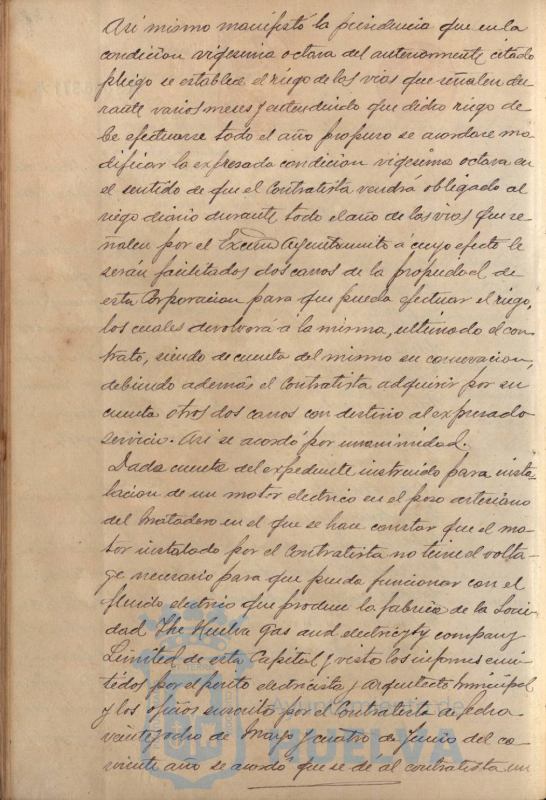 Asi mismo manifestó la presidencia que en la
condicion vigesimia octava del anteriormente citado
pliego se establece el riego de las vias que señalen du
rante varios meses y entendiendo que dicho riego de
be efectuarse todo el año propuso se acordare mo
dificar la expresada condicion vigesima octava en
el sentido de que el Contratista vendrá obligado al
riego diario durante todo el año de las vias que se
ñalen por el Excmo Ayuntamiento á cuyo efecto le
serán facilitados dos carros de la propiedad de
esta Corporacion para que pueda efectuar el riego,
los cuales devolverá a la misma, ultimado el con
trato, siendo de cuenta del mismo su conservacion,
debiendo además el Contratista adquirir por su
cuenta otros dos carros con destino al expresado
servicio. Asi se acordó por unanimidad.
Dada cuenta del expediente instruido para insta
lacion de un motor electrico en el pozo artesiano
del Matadero en el que se hace constar que el mo
tor instalado por el Contratista no tiene el volta
ge necesario para que pueda funcionar con el
fluido electrico que produce la fabrica de la Socie
dad The Huelva Gas and electricyty company
Limited de esta Capital y visto los informes emi
tidos por el perito electricista y Arquitecto Municipal
y los oficios suscrito por el Contratista de fecha
veintiocho de Mayo y cuatro de Junio del co
rriente año se acordó que se de al contratista un
Ayuntamiento de
HUELVA